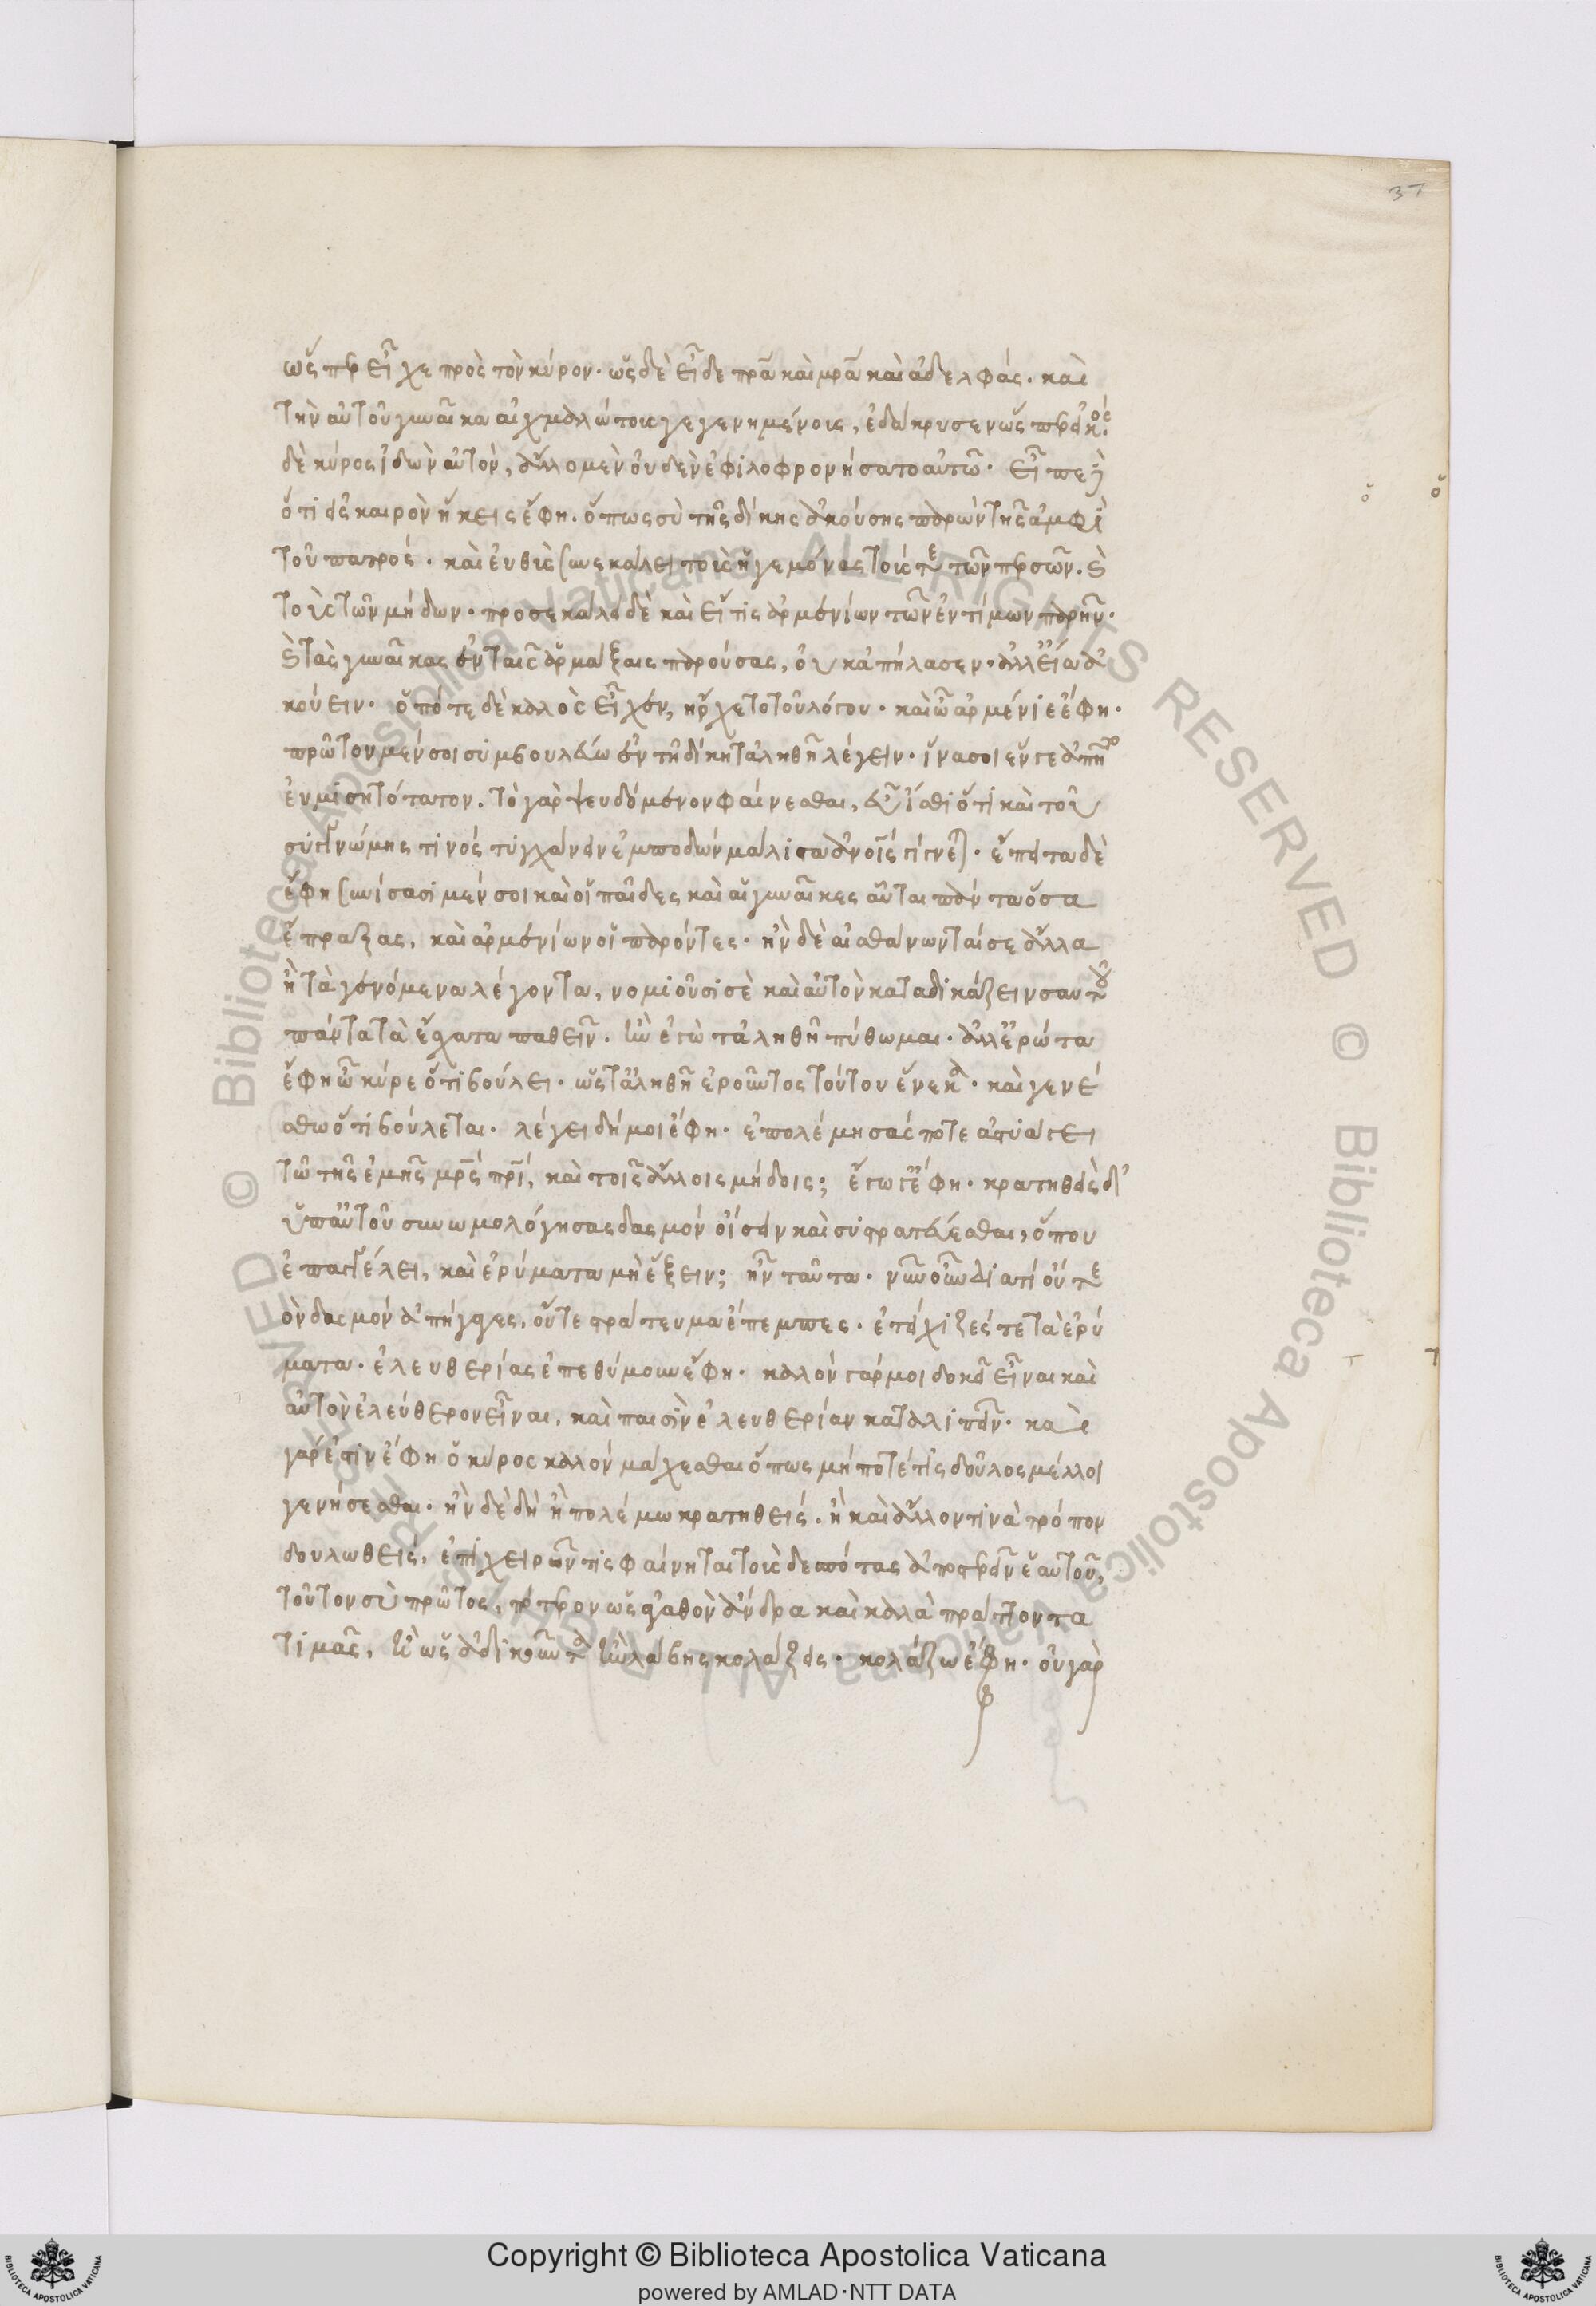 37
ὥσπερ εἶχε πρὸς τὸν κύρον. ὡς δὲ εἶδε πρ̅α καὶ μρ̅α καὶ ἀδελφάς. καὶ
τὴν αὑτοῦ γυναῖκα αἰχμαλώτους γεγενημένους, ἐδάκρυσεν ὥσπερ εἰκός.
δὲ κύρος ἰδὼν αὐτὸν, ἄλλο μὲν οὐδὲν ἐφιλοφρονήσατο αὐτῶ. εἶπε δὲ
ὅτι εἰς καιρὸν ἥκεις ἔφη. ὅπως σὺ τῆς δίκης ἀκούσης παρὼν τῆς ἀμφὶ
τοῦ πατρός. καὶ εὐθὺς συνεκάλει τοὺς ἡγεμόνας τούς τε τῶν περσῶν. καὶ
τοὺς τῶν μήδων. προσεκάλει δὲ καὶ εἴ τις ἀρμενίων τῶν ἐντίμων παρῆν.
καὶ τὰς γυναῖκας ἐν ταῖς ἁρμαμάξαις παρούσας, οὐκ ἀπήλασεν. ἀλλ' εἴα ἀ
κούειν. ὁπότε δὲ καλῶς εἶχεν, ἤρχετο τοῦ λόγου. καὶ ὦ ἀρμένιε ἔφη.
πρῶτον μέν σοι συμβουλεύω ἐν τῆ δίκη τἀληθῆ λέγειν. ἵνα σοι ἕν γε ἀπῆ τὸ
ἐνμισητότατον. τὸ γὰρ ψευδόμενον φαίνεσθαι, εὖ ἴσθι ὅτι καὶ τοῦ
συγγνώμης τινός τυγχάνειν ἐμποδὼν μάλιστα ἀνοῖς γίγνεται. ἔπειτα δὲ
ἔφη συνίσασι μέν σοι καὶ οἱ παῖδες καὶ αἱ γυναῖκες αὗται πάντα ὅσα
ἔπραξας, καὶ ἀρμενίων οἱ παρόντες. ἢν δὲ αἰσθάνωνταί σε ἄλλα
ἢ τὰ γενόμενα λέγοντα, νομιοῦσί σὲ καὶ αὐτὸν καταδικάζειν σαυτοῦ
πάντα τὰ ἔσχατα παθεῖν. ἢν ἐγὼ τἀληθῆ πύθωμαι. ἀλλ' ἐρώτα
ἔφη ὦ κύρε ὅτι βούλει. ὡς τἀληθῆ ἐροῦντος τούτου ἕνεκα. καὶ γενέ
σθω ὅτι βούλεται. λέγει δή μοι ἔφη. ἐπολέμησάς ποτε ἀστυάγει
τῶ τῆς ἐμῆς μρ̅ς πρ̅ι, καὶ τοῖς ἄλλοις μήδοις; ἔγωγ' ἔφη. κρατηθεὶς δ'
ὑπ' αὐτοῦ συνωμολόγησας δασμόν οἴσειν καὶ συστρατεύεσθαι, ὅπου
ἐπαγγέλει, καὶ ἐρύματα μὴ ἕξειν; ἦν ταῦτα. νῦν οὖν διατί οὔτε
ὸν δασμόν ἀπήγαγες, οὔτε στράτευμα ἔπεμπες. ἐτείχιζές τε τὰ ἐρύ
ματα. ἐλευθερίας ἐπεθύμουν ἔφη. καλὸν γάρ μοι δοκεῖ εἶναι καὶ
αὐτὸν ἐλεύθερον εἶναι, καὶ παισὶν ἐλευθερίαν καταλιπεῖν. καὶ
γάρ ἐστιν ἔφη ὁ κύρος καλὸν μάχεσθαι ὅπως μήποτέ τις δοῦλος μέλλοι
γενήσεσθαι. ἢν δὲ δὴ ἢ πολέμω κρατηθεὶς. ἢ καὶ ἄλλον τινὰ τρόπον
δουλωθεὶς, ἐπιχειρῶν τις φαίνηται τοὺς δεσπότας ἀποστερεῖν ἑαυτοῦ,
τοῦτον σὺ πρῶτος, πότερον ὡς ἀγαθὸν ἄνδρα καὶ καλὰ πράττοντα
τιμᾶς, ἢ ὡς ἀδικοῦντα ἢν λάβης κολάζεις. κολάζω ἔφη. οὐ γὰρ
Copyright © Biblioteca Apostolica Vaticana
powered by AMLAD·NTT DATA